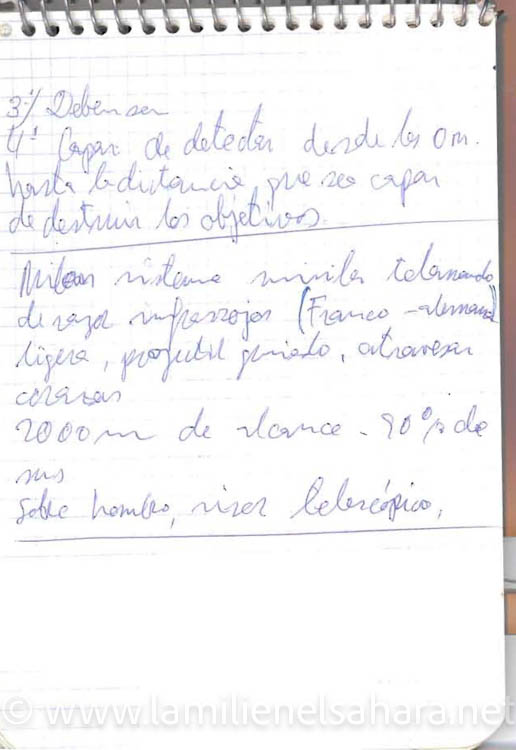 3º/ Deben ser
4º Capaz de detectar desde los 0 m.
hasta la distancia que sea capaz
de destruir los objetivos.
Milan sistema misiles teleomando
de rayos infrarrojos (Franco-alemana)
ligera, proyectil guiado, atraviesan
corazas
2000 m de alcance - 90% de
sus
Sobre hombro, visor telescópico,
© www.lamilienelsahara.net